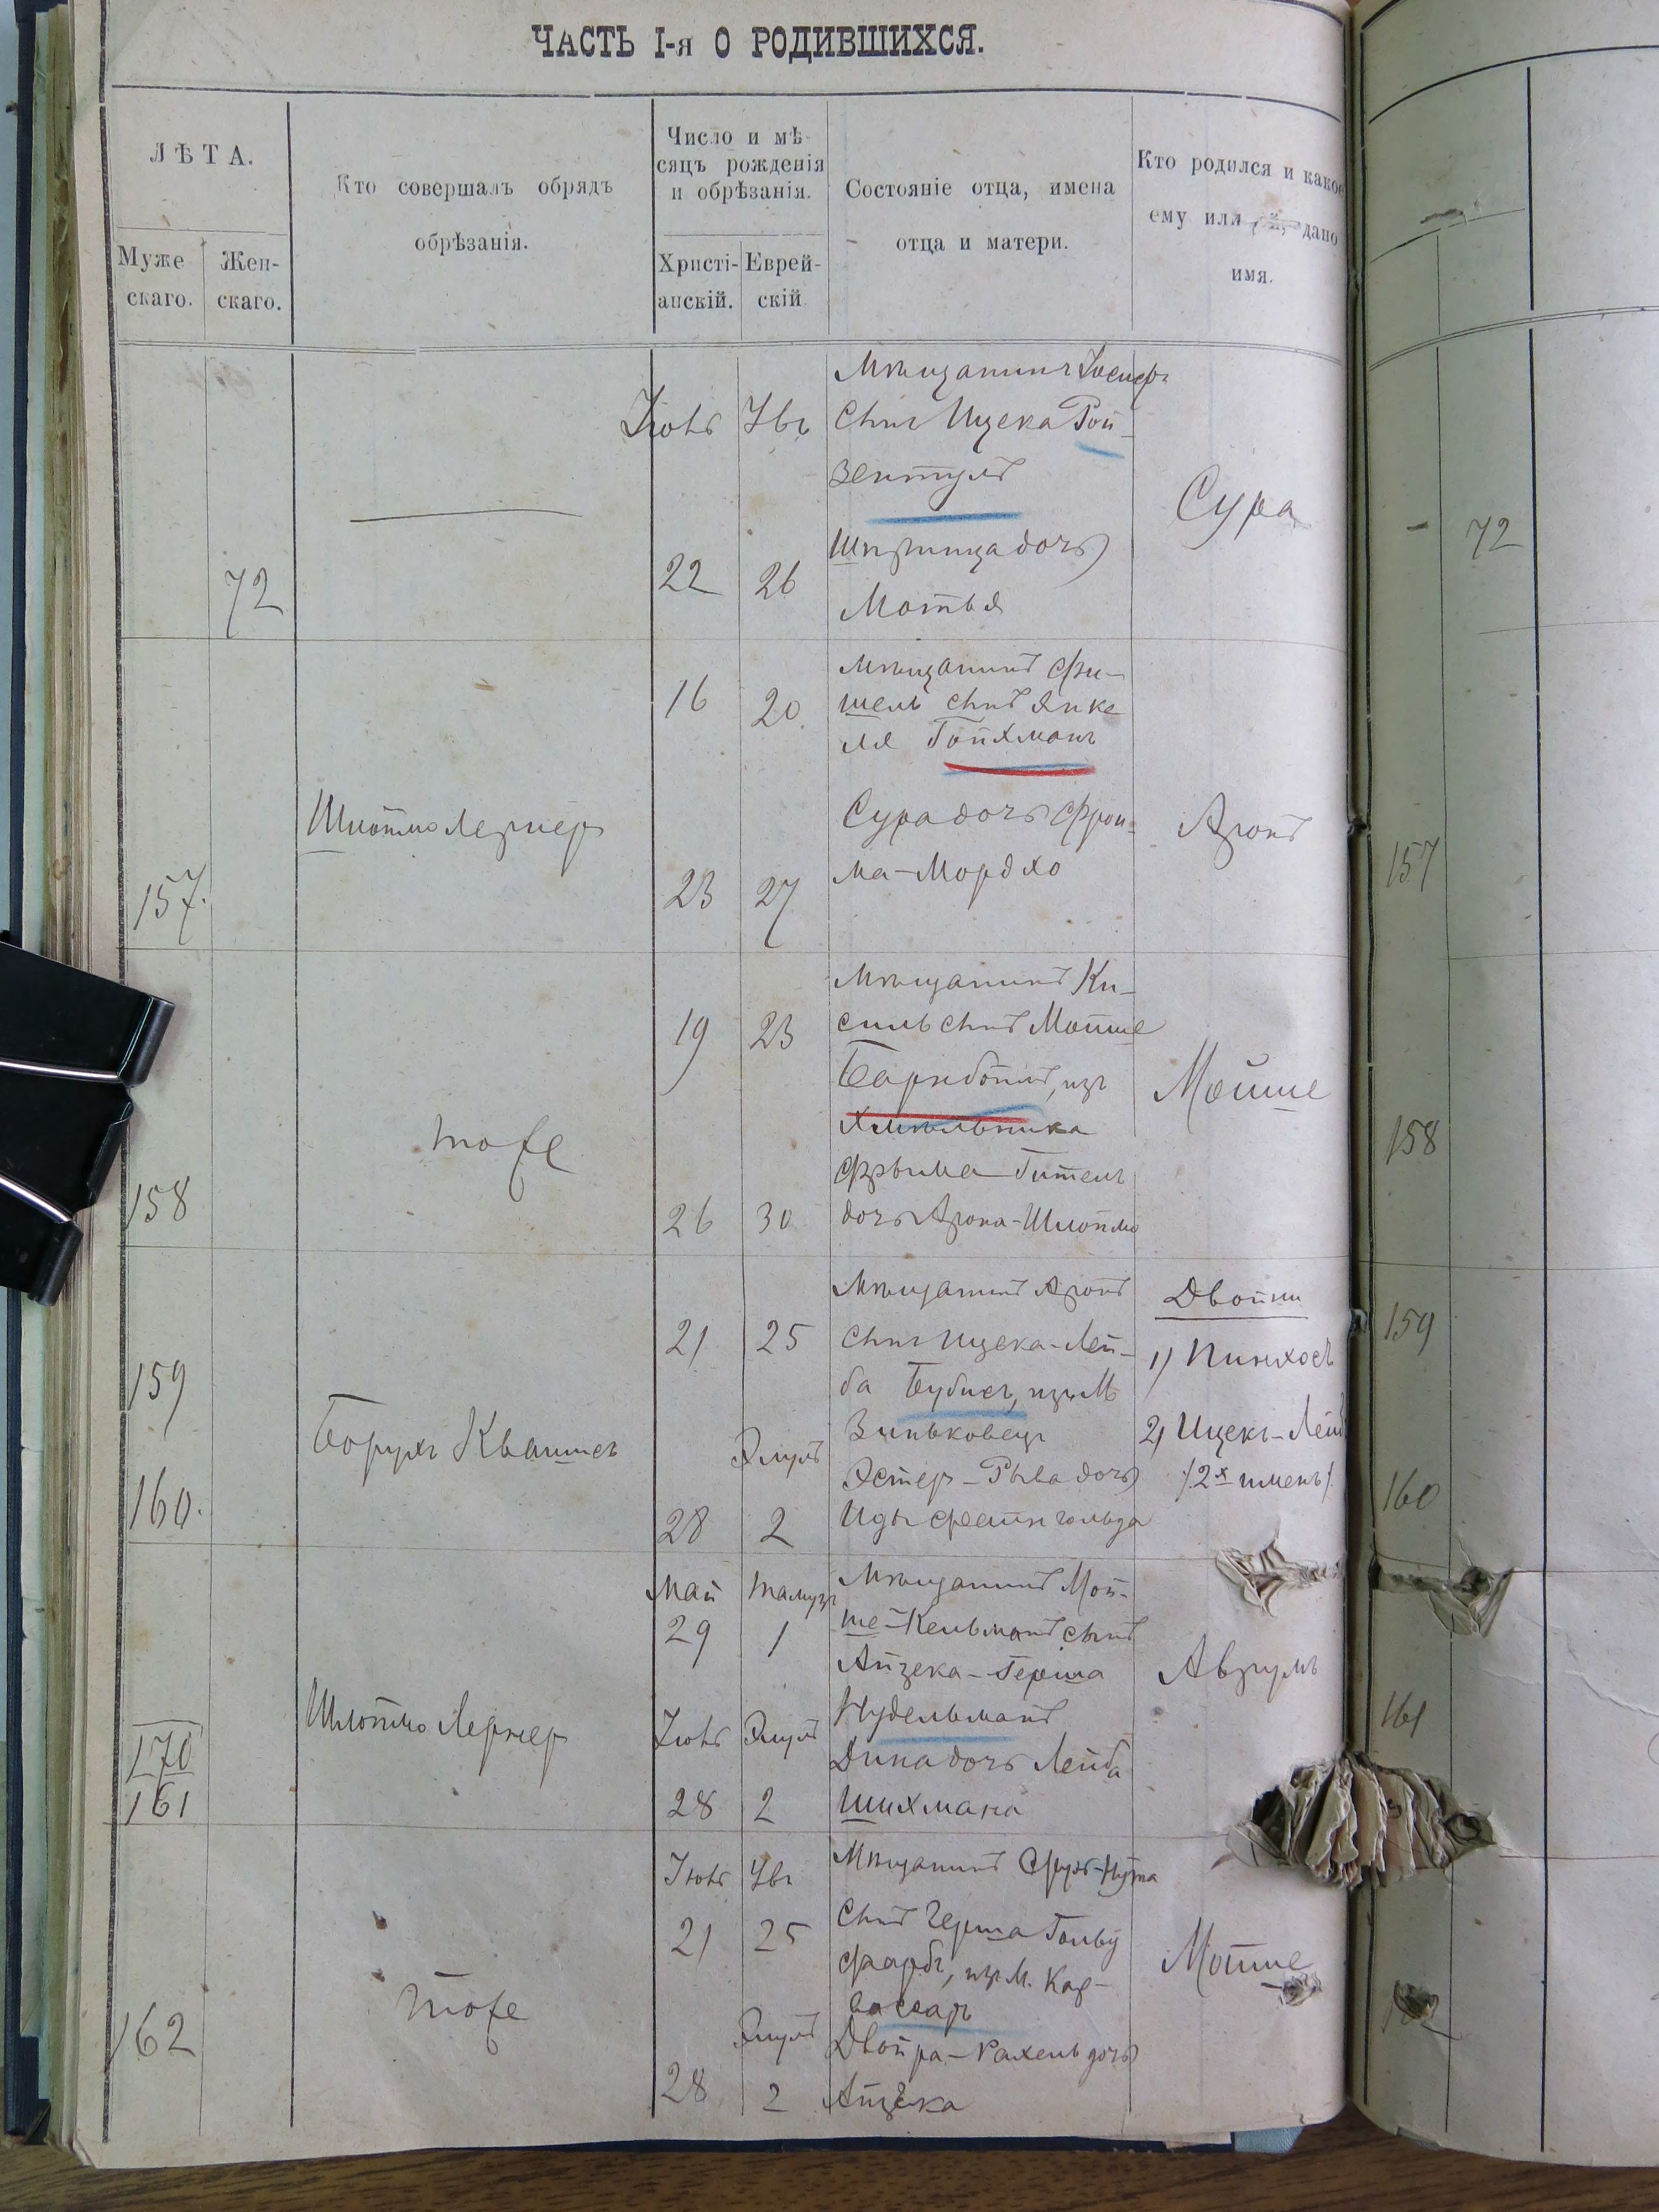 ЧАСТЬ I-я О РОДИВШИХСЯ.
ЛѢТА.
Муже
скаго.
Жен-
скаго.
Кто совершалъ обрядъ
обрѣзанія.
Число и мѣ-
сяцъ рожденія
и обрѣзанія.
Христі-
анскій.
Еврей-
скій
Состояніе отца, имена
отца и матери.
Кто родился и какое
ему или ей, дано
имя.
72
Іюль
22
Увъ
26
Мѣщанинъ Іосифъ
сынъ Ицека Рой-
зентулъ
Шпринца дочь
Мотья
Сура
72
157.
Шлоймо Лернеръ
16
20
23
27
Мѣщанинъ Фи-
шель сынъ Янке
ля Гойхманъ
Сура дочь Фрои-
ма-Мордхо
Аронъ
157
158
тоже
19
23
26
30
Мѣщанинъ Ки-
силь сынъ Мойше
изъ
Хмѣльника
Фрыма Гитель
дочь Арона-Шлоймо
Мойше
158
159
160.
Борухъ Квашисъ
21
25
Элулъ
28
2
Мѣщанинъ Аронъ
сынъ Ицека-Лей-
ба Бубисъ, изъ М
Зиньковецъ
Эстер-Рыва дочь
Иды
Двойни
1) Пинхосъ
2) Ицекъ-Лейб
/2х именъ/.
159
160
170
161
Шлоймо Лернеръ
Май
29
Тамузъ
1
Іюль
28
Элулъ
2
Мѣщанинъ Мой-
ше-Кельманъ сынъ
Айзека-Герша
Нудельманъ
Дина дочь Лейба
Шихмана
Аврумъ
161
162
тоже
Іюль
21
Увъ
25
Элулъ
28
2
Мѣщанинъ
сынъ Герша Гольд
фарбъ, изъ М. Кар-
васаръ
Двойра-Рахель дочь
Айзека
Мойше